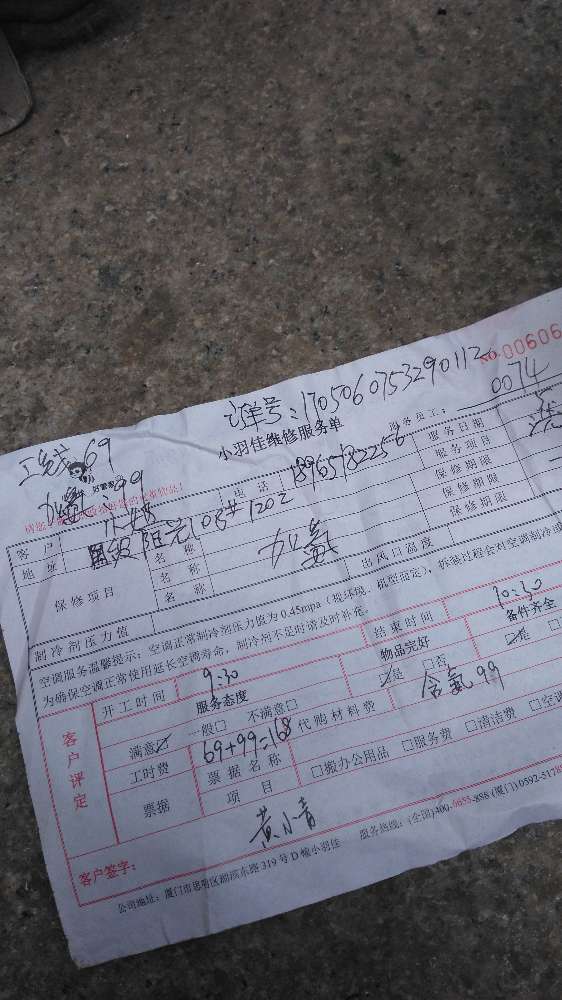 NO.00606
订单号:1705060753290112
工钱69
加氟:99
小羽佳维修服务单
服务员工: 0074
好管家
客户 小姐 电话 18965182256 服务日期
地址 阳光108#1202 服务项目
保修项目 名称 加氟 保修期限
名称 保修期限
名称 保修期限
制冷剂压力值 出风口温度
空调服务温馨提示:空调正常制冷剂压力值为0.45mpa(视环境、机型而定),拆装过程会对空调制冷
为确保空调正常使用延长空调寿命,制冷剂不足时请及时补充。
客户评定
开工时间 9:30 结束时间 10:30
服务态度 物品完好 备件齐全
满意☑ 一般□ 不满意□ ☑是 □否 ☑是 □
工时费 69+99=168 代购材料费 含氟99
票据 票据名称
项目 □搬办公用品 □服务费 □清洁费 □空调
客户签字: 黄小青
公司地址:厦门市思明区湖滨东路319号D幢小羽佳 服务热线:(全国)400.0655.858 (厦门)0592-517